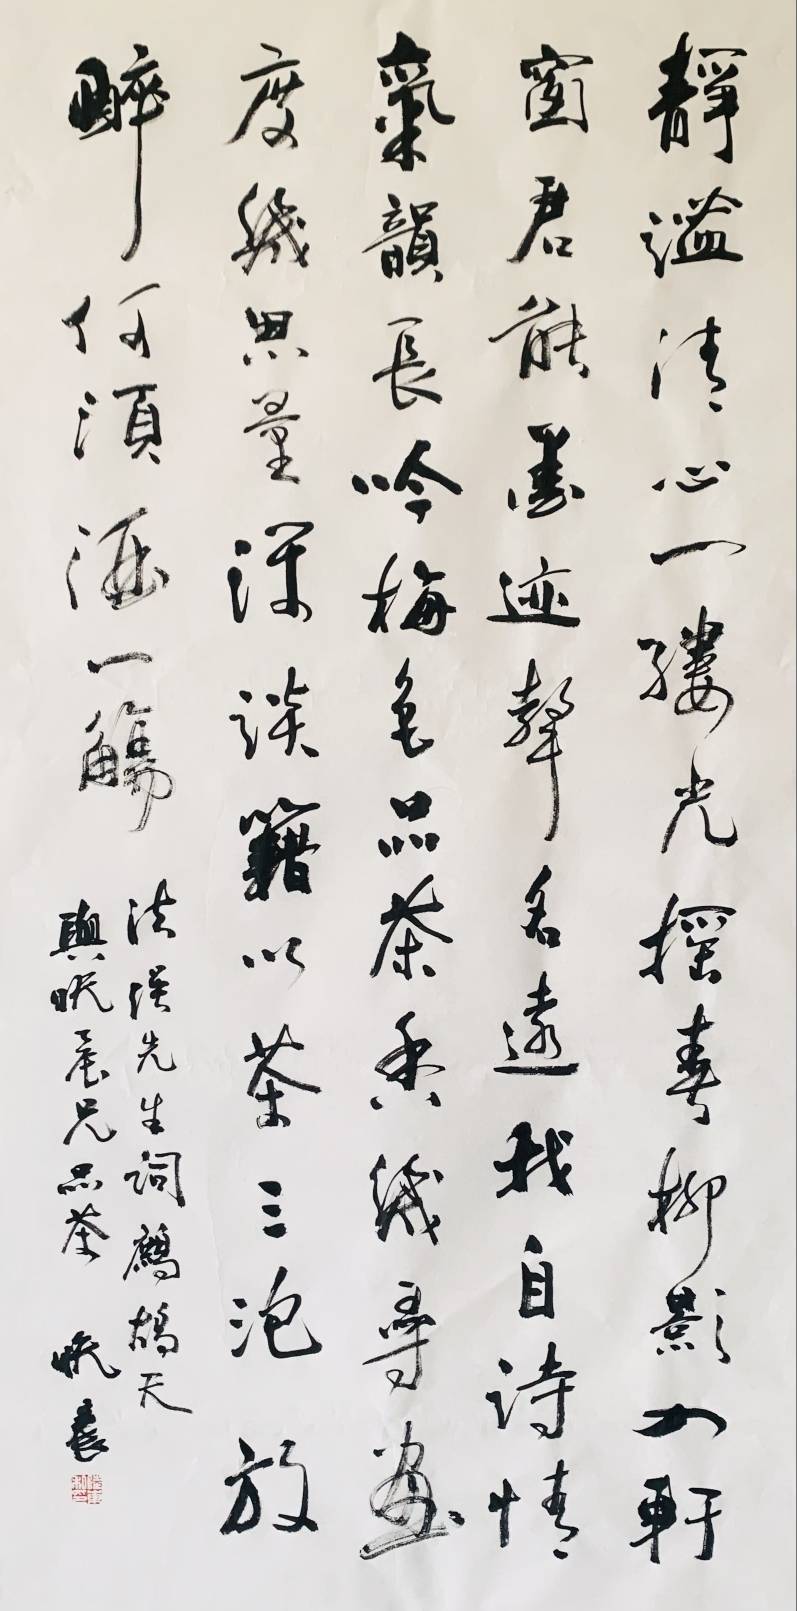 靜謐清心一縷光摇春柳影入軒
窗君能墨迹聲名遠我自詩情
氣韻長吟梅色品茶香幾尋畫
度幾思量深談籍以茶三泡放
醉何須酒一觴
法漢先生詞鷓鴣天
與晚晨兄品茶 晚晨